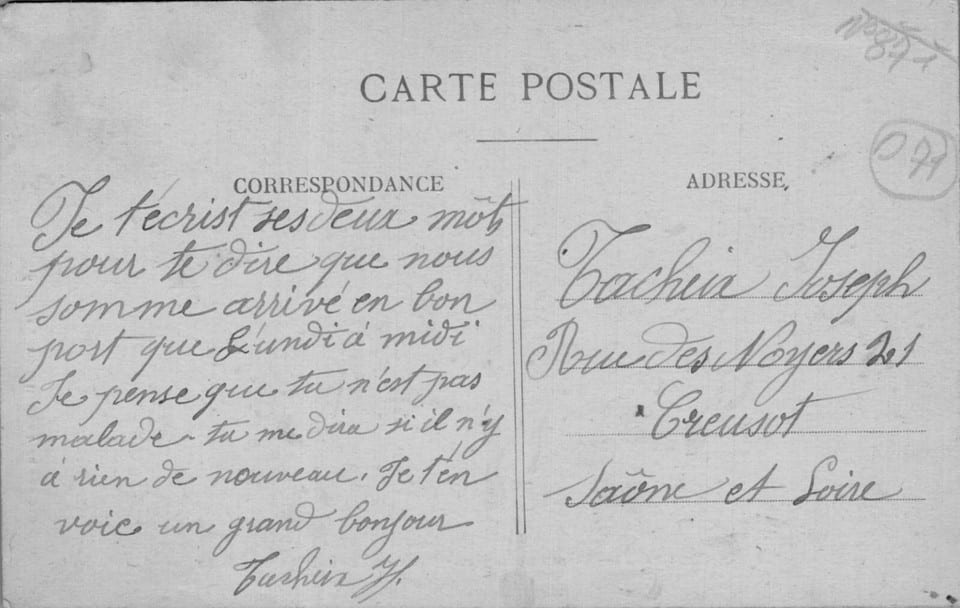 CARTE POSTALE
CORRESPONDANCE
Je t'écrist ses deux môts
pour te dire que nous
somme arrivé en bon
port que L'undi à midi
Je pense que tu n'est pas
malade. tu me dira si il n'y
à rien de nouveau. Je t'en
voie un grand bonjour
Tacheix H.
ADRESSE
Tacheix Joseph
Rue des Noyers 21
Creusot
Saône et Loire
071